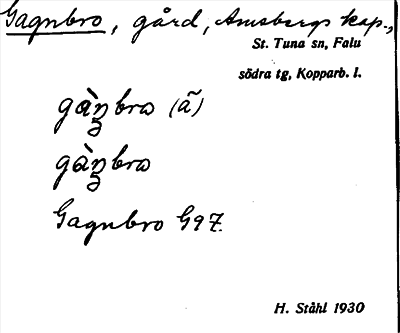 Gagnbro, gård, Amsbergs kap.,
St. Tuna sn, Falu
södra tg, Kopparb. l.
gàŋbrω (ã)
gàŋbrω
Gagnbro G97.
H. Ståhl 1930